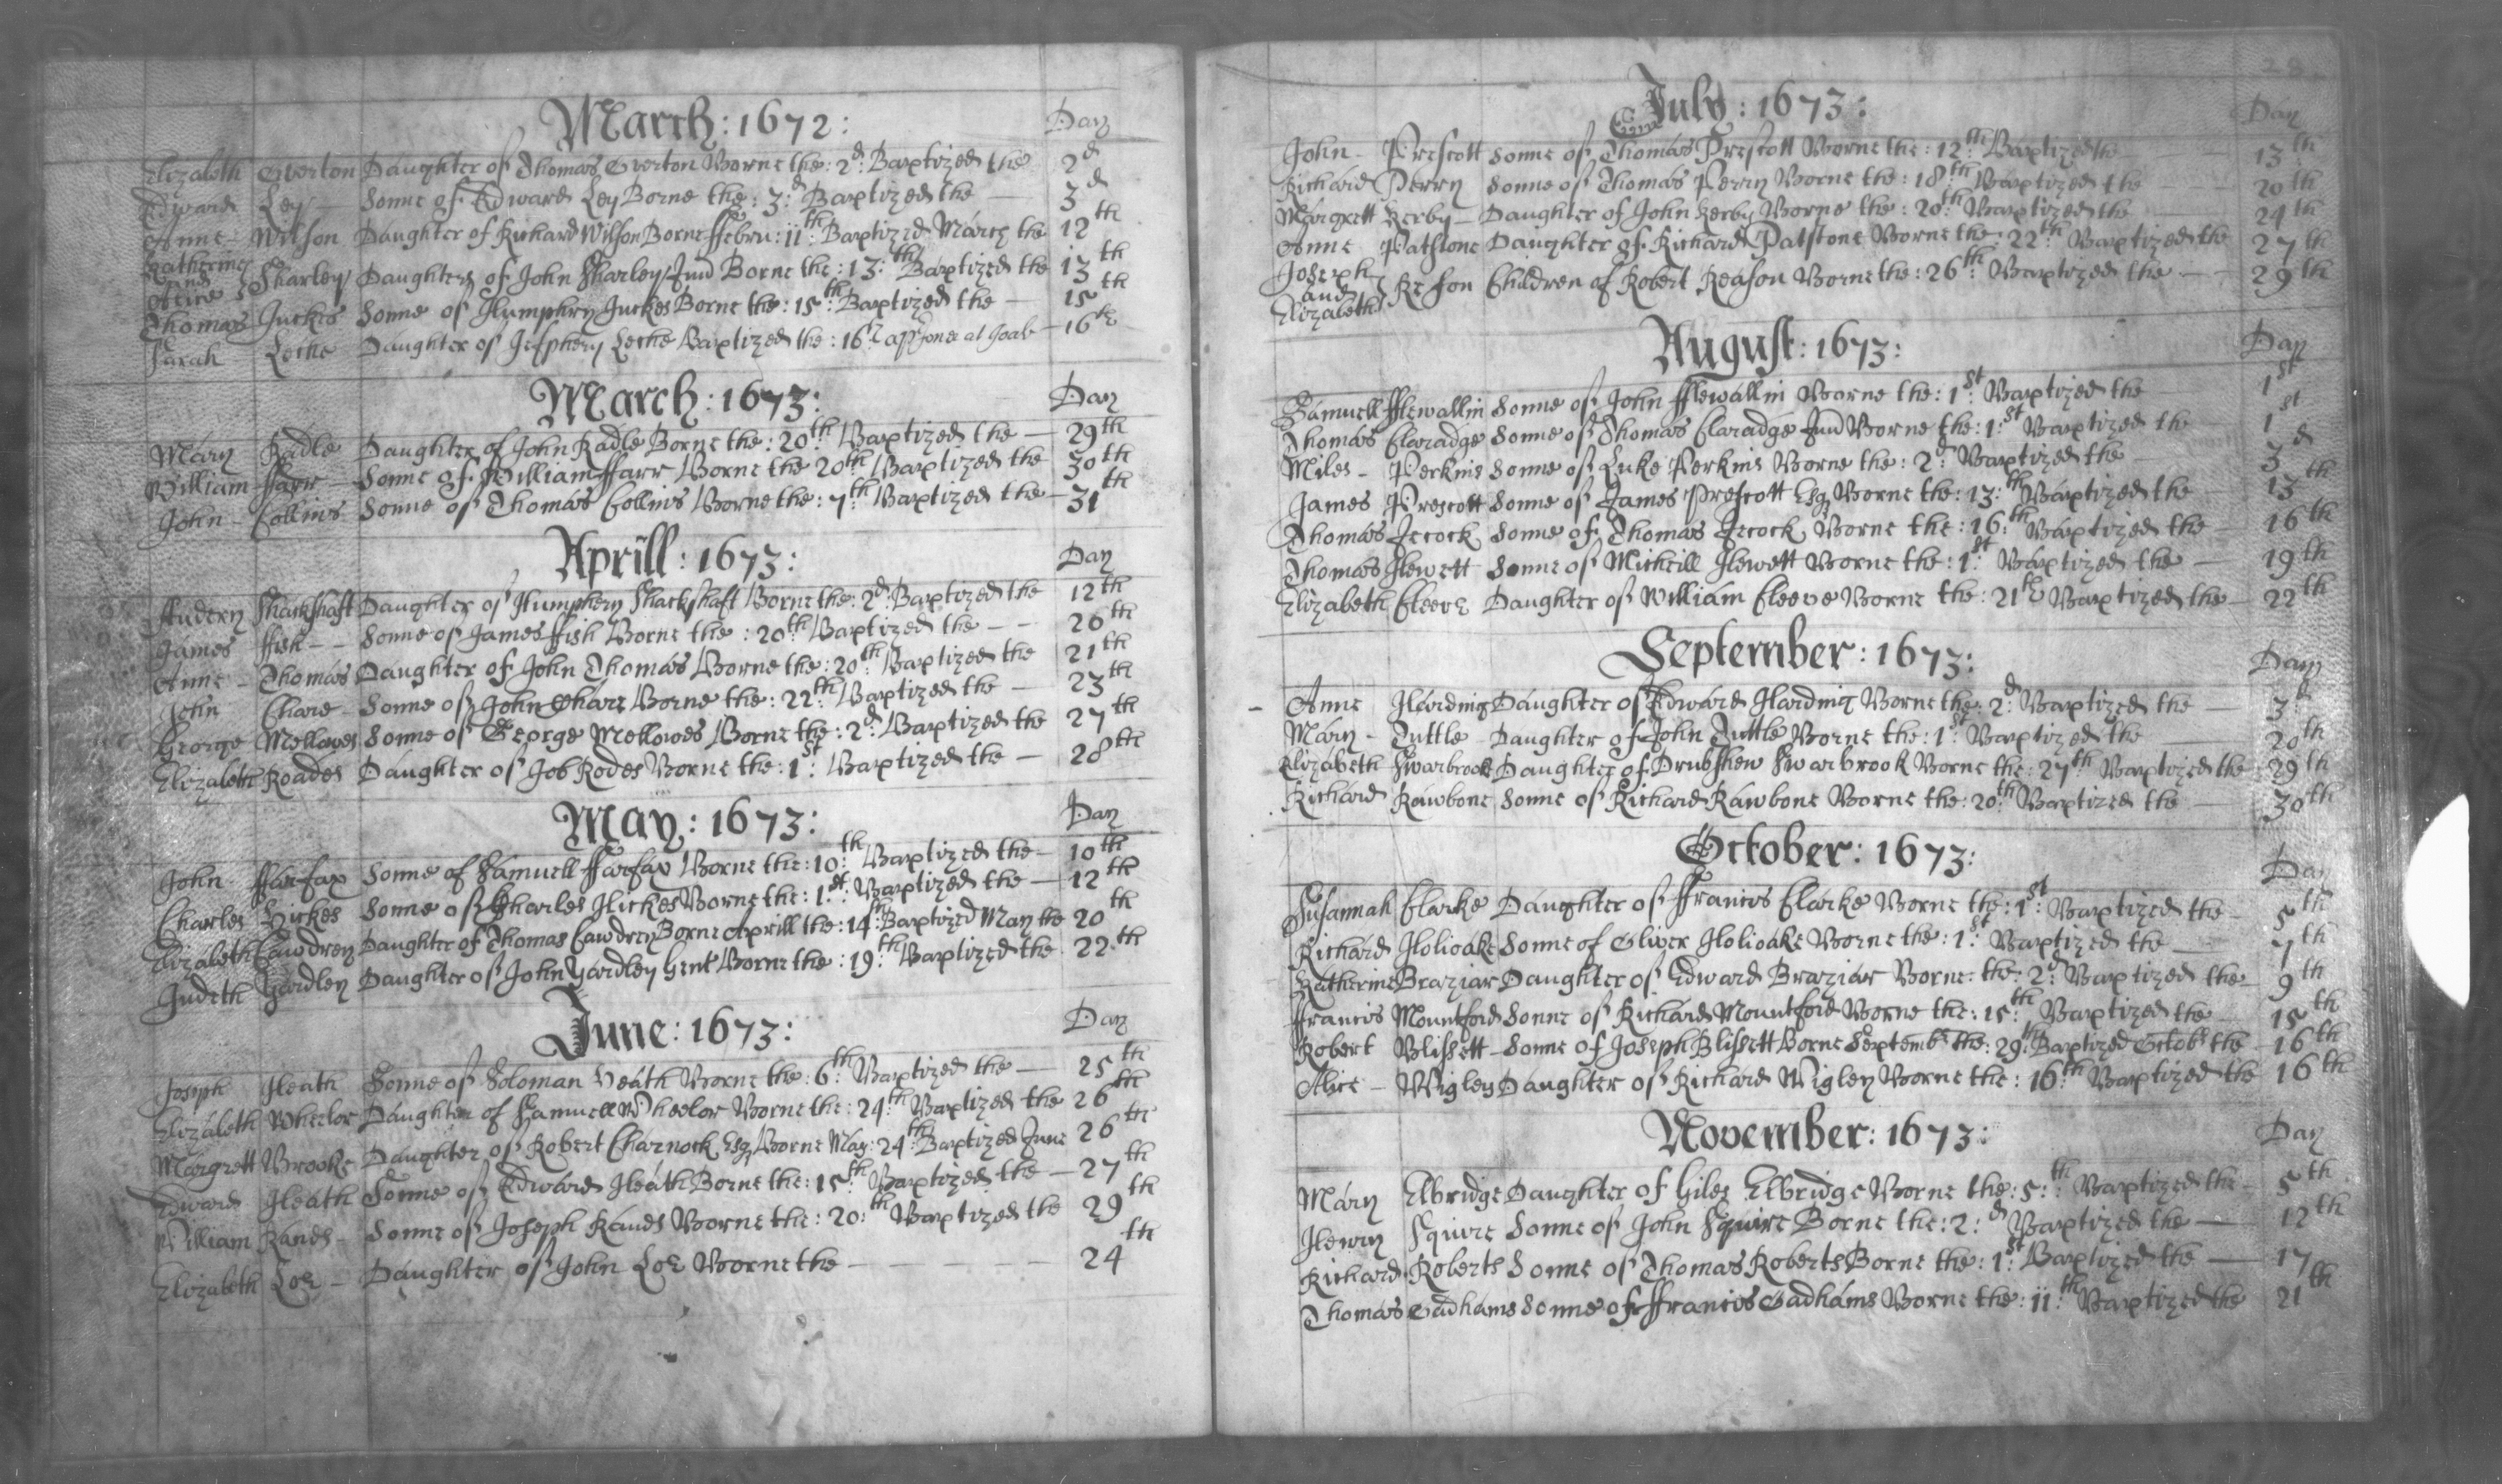 March: 1672:
Day
Elizabeth Everton Daughter of Thomas Everton Borne the: 2d: Baptized the 2d
Edward Ley — Sonne of Edward Ley Borne the: 3d: Baptized the — 3d
Anne - Wilson Daughter of Richard Wilson Borne ffebru: 11th: Baptized March the 12th
Katherine
and Sharley Daughters of John Sharley Jun Borne the: 13:th Baptized the 13th
Alice
Thomas Juckes Sonne of Humphry Juckes Borne the: 15:th Baptized the — 15th
Sarah Leeke Daughter of Jefphery Leeke Baptized the: 16th 16th
March: 1673:
Day
Mary Radle Daughter of John Radle Borne the: 20th: Baptized the — 29th
William ffarr — Sonne of William ffarr Borne the 20th Baptized the 30th
John - Collins Sonne of Thomas Collins Borne the: 7th: Baptized the — 31th
Aprill: 1673:
Day
Audery Shackshaft Daughter of Humphery Shackshaft Borne the: 2d: Baptized the 12th
James ffish - - Sonne of James ffish Borne the: 20th: Baptized the - - 26th
Anne - Thomas Daughter of John Thomas Borne the: 20th: Baptized the 21th
John Chare - Sonne of John Chare Borne the: 22th: Baptized the — 23th
George Mellowes Sonne of George Mellowes Borne the: 2d: Baptized the 27th
Elizabeth Roades Daughter of Job Rodes Borne the: 1st: Baptized the — 28th
May: 1673:
Day
John - ffarfax Sonne of Samuell ffarfax Borne the: 10:th Baptized the - 10th
Charles Hickes Sonne of Charles Hickes Borne the: 1st: Baptized the — 12th
Elizabeth Cawdrey Daughter of Thomas Cawdrey Borne Aprill the: 14th: Baptized May the 20th
Judeth Yardley Daughter of John Yardley Gent Borne the: 19:th Baptized the 22th
June: 1673:
Day
Joseph Heath Sonne of Soloman Heath Borne the: 6th: Baptized the — 25th
Elizabeth Wheelor Daughter of Samuell Wheelor Borne the: 24:th Baptized the 26th
Margrett Brooke Daughter of Robert Charnock Esq Borne May: 24th: Baptized June 26th
Edward Heath Sonne of Edward Heath Borne the: 15:th Baptized the — 27th
William Rands - Sonne of Joseph Rands Borne the: 20:th Baptized the 29th
Elizabeth Loe - Daughter of John Loe Borne the — — — — 24th
28
July: 1673:
Day
John - Prescott Sonne of Thomas Prescott Borne the: 12th: Baptized the 13th
Richard Perry Sonne of Thomas Perry Borne the: 18th: Baptized the — 20th
Margrett Kerby - Daughter of John Kerby Borne the: 20:th Baptized the — 24th
Anne Patstone Daughter of Richard Patstone Borne the: 22th: Baptized the 27th
Joseph
and Reson Children of Robert Reason Borne the: 26th: Baptized the - - 29th
Elizabeth
August: 1673:
Day
Samuell fflewallin Sonne of John fflewallin Borne the: 1st: Baptized the 1st
Thomas Claradge Sonne of Thomas Claradge Jun Borne the: 1:st Baptized the 1st
Miles - Perkins Sonne of Luke Perkins Borne the: 2d: Baptized the 3d
James Prescott Sonne of James Prescott Esq Borne the: 13:th Baptized the 13th
Thomas Jecock Sonne of Thomas Jecock Borne the: 16:th Baptized the 16th
Thomas Hewett Sonne of Micheill Hewett Borne the: 1st: Baptized the — 19th
Elizabeth Cleeve Daughter of William Cleeve Borne the: 21th Baptized the - 22th
September: 1673:
Day
- Anne Harding Daughter of Edward Harding Borne the: 2d: Baptized the — 3d
Mary - Tuttle - Daughter of John Tuttle Borne the: 1st: Baptized the — 20th
Elizabeth Swarbrook Daughter of Drubshew Swarbrook Borne the: 27th Baptized the 29th
Richard Rawbone Sonne of Richard Rawbone Borne the: 20:th Baptized the — 30th
October: 1673:
Day
Susannah Clarke Daughter of ffrancis Clarke Borne the: 1st: Baptized the - 5th
Richard Holioake Sonne of Oliver Holioake Borne the: 1st: Baptized the — 7th
Katherine Braziar Daughter of Edward Braziar Borne: the: 2d: Baptized the - 9th
ffrancis Mountford Sonne of Richard Mountford Borne the: 15:th Baptized the 15th
Robert Blissett - Sonne of Joseph Blissett Borne Septembr the: 29th: Baptized Octobr the 16th
Alice - Wigley Daughter of Richard Wigley Borne the: 16:th Baptized the 16th
November: 1673:
Day
Mary Elbridge Daughter of Giles Elbridge Borne the: 5:th Baptized the - 5th
Henry Squire Sonne of John Squire Borne the: 2:d Baptized the — 12th
Richard Roberts Sonne of Thomas Roberts Borne the: 1:st Baptized the — 17th
Thomas Oadhams Sonne of ffrancis Oadhams Borne the: 11:th Baptized the 21th